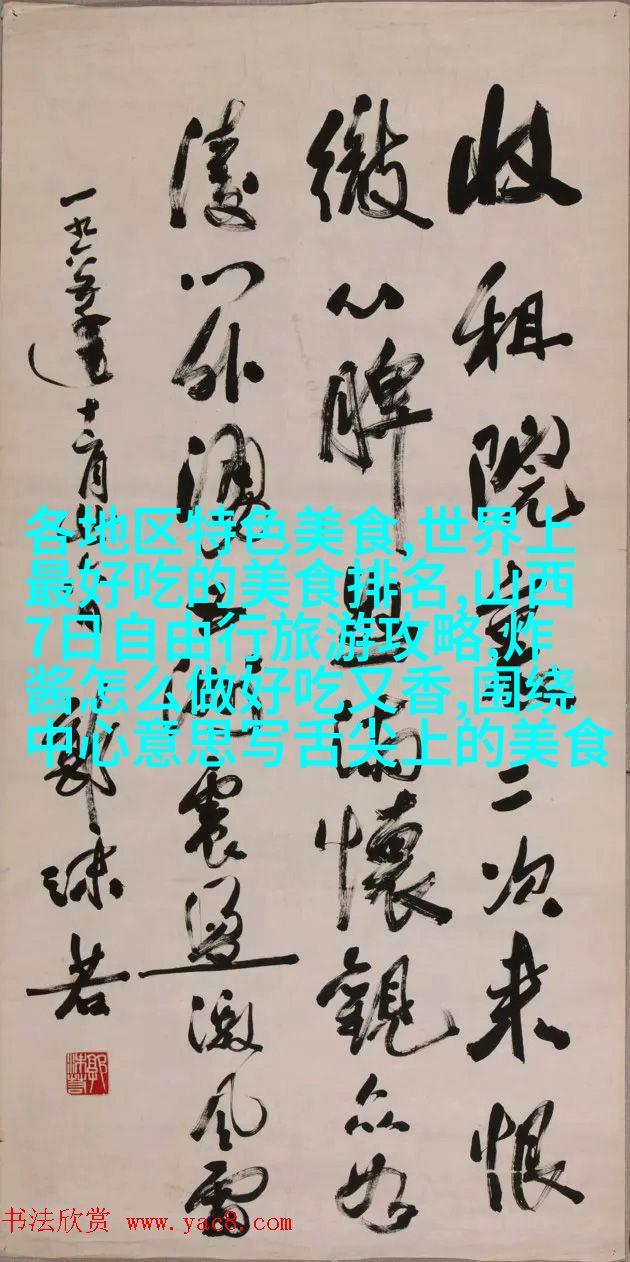 收租院二次来恨
徹心脾思满懷觀众如
涛门外震盪激风雷
一九六十二月 郭沫若
各地区特色美食,世界上
最好吃的美食排名,山西
7日自由行旅游攻略,炸
酱怎么做好吃又香,围绕
中心意思写舌尖上的美食
书法欣赏 www.yac8.com